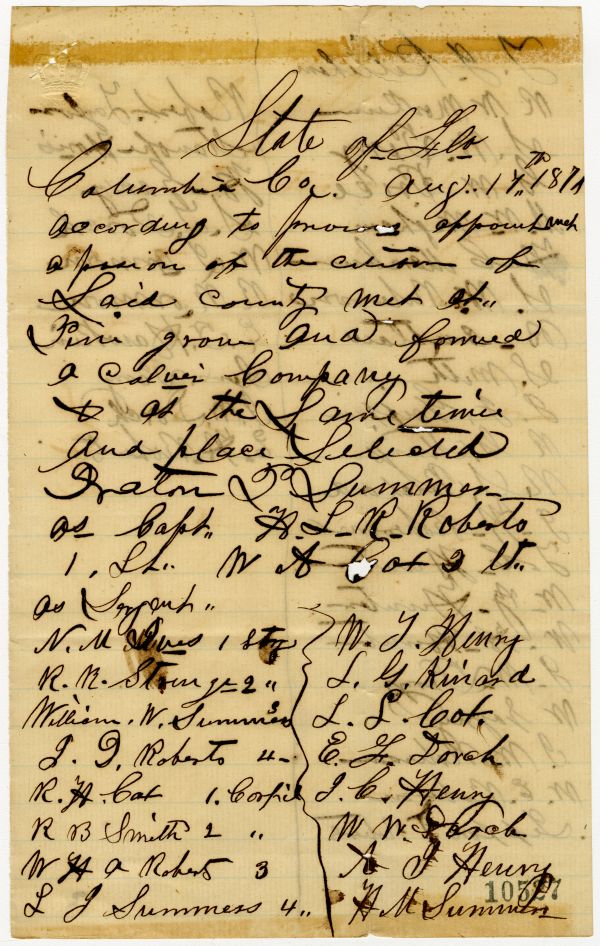 State of Flo
Columbia Co. Aug. 17th 187
according to previous appointment
a posion of the citison of
Said county met at
Pine grove and formed
a Calver Company
& at the Same timie
and place Selected
Draton P Summer
as Capt. H. L. R. Roberts
1, Lt. W A Cox 2 lt.
as Sergent
N. M Ives 1 Stg
R. R. Strange 2 "
William. W. Summers 3
J. D. Roberts 4
R. H. Cox 1. Corpil
R B Smith 2 "
W H A Roberts 3
L J Summers 4 "
W. J. Henry
L. G. Kinard
L. L. Cox.
E. H. Dorch
J. C. Henry
W W. Dorch
A J Henry
H M Summers
10527